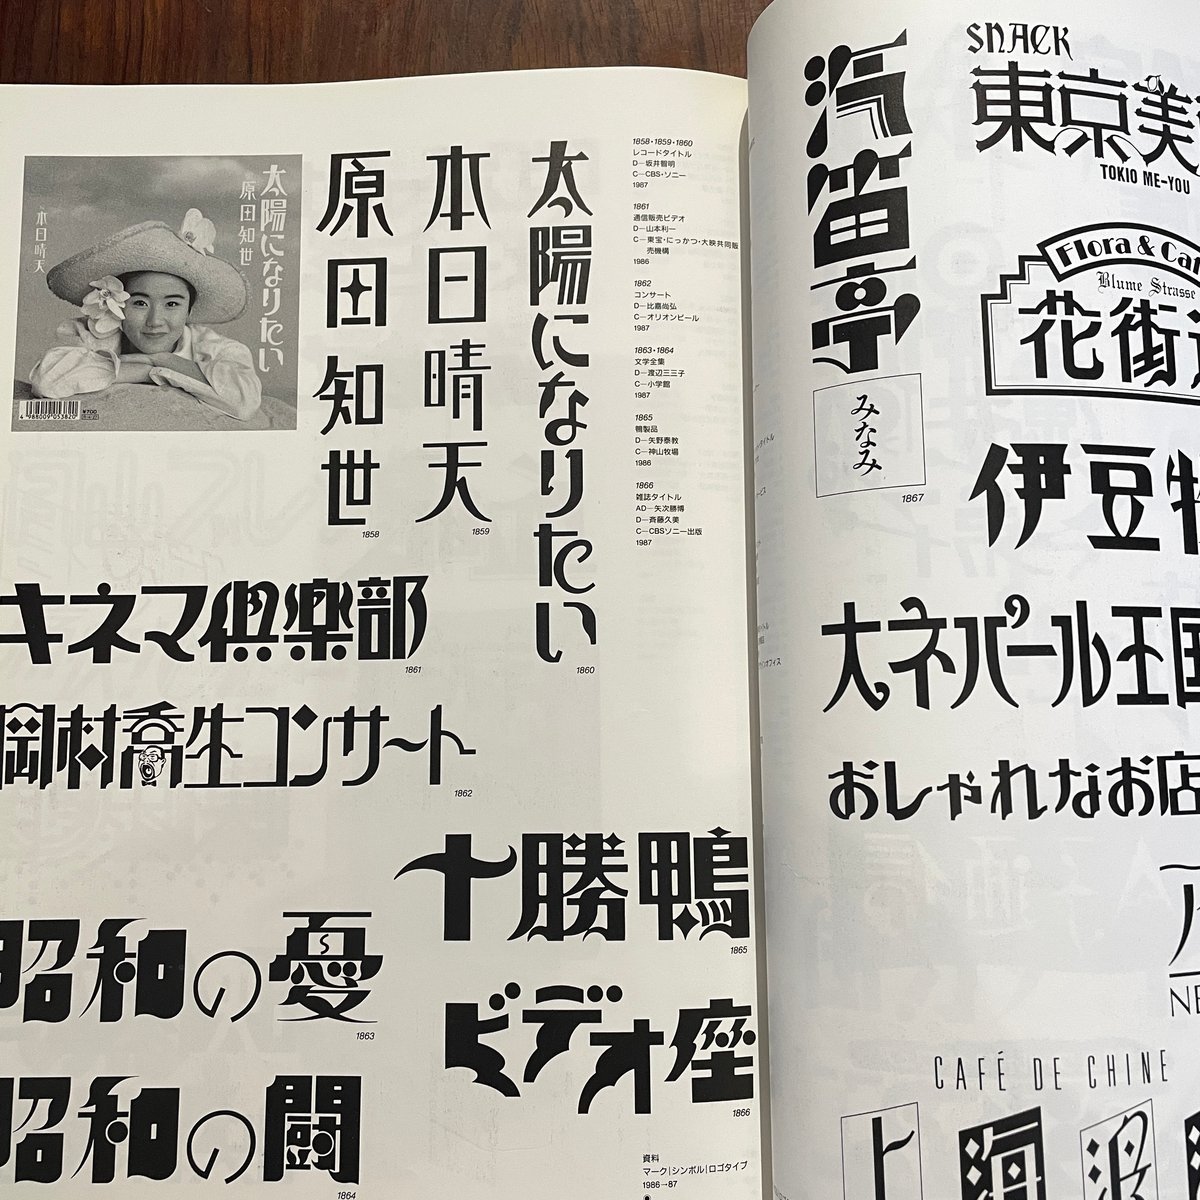 太陽になりたい
原田知世
本日晴天
4988009053820
¥700
原田知世
1858
本日晴天
1859
太陽になりたい
1860
1858・1859・1860
レコードタイトル
D—坂井智明
C—CBS・ソニー
1987
1861
通信販売ビデオ
D—山本利一
C—東宝・にっかつ・大映共同販
売機構
1986
1862
コンサート
D—比嘉尚弘
C—オリオンビール
1987
1863・1864
文学全集
D—渡辺三三子
C—小学館
1987
1865
鴨製品
D—矢野泰教
C—神山牧場
1986
1866
雑誌タイトル
AD—矢次勝博
D—斉藤久美
C—CBSソニー出版
1987
キネマ倶楽部
1861
岡村喬生コンサート
1862
十勝鴨
1865
昭和の憂
1863
ビデオ座
1866
昭和の闘
1864
資料
マーク|シンボル|ロゴタイプ
1986→87
汽笛亭
みなみ
1867
SNACK
東京美
TOKIO ME-YOU
Flora & Caf
Blume Strasse
花街
伊豆
大ネパール王国
おしゃれなお店
NE
CAFÉ DE CHINE
上海波